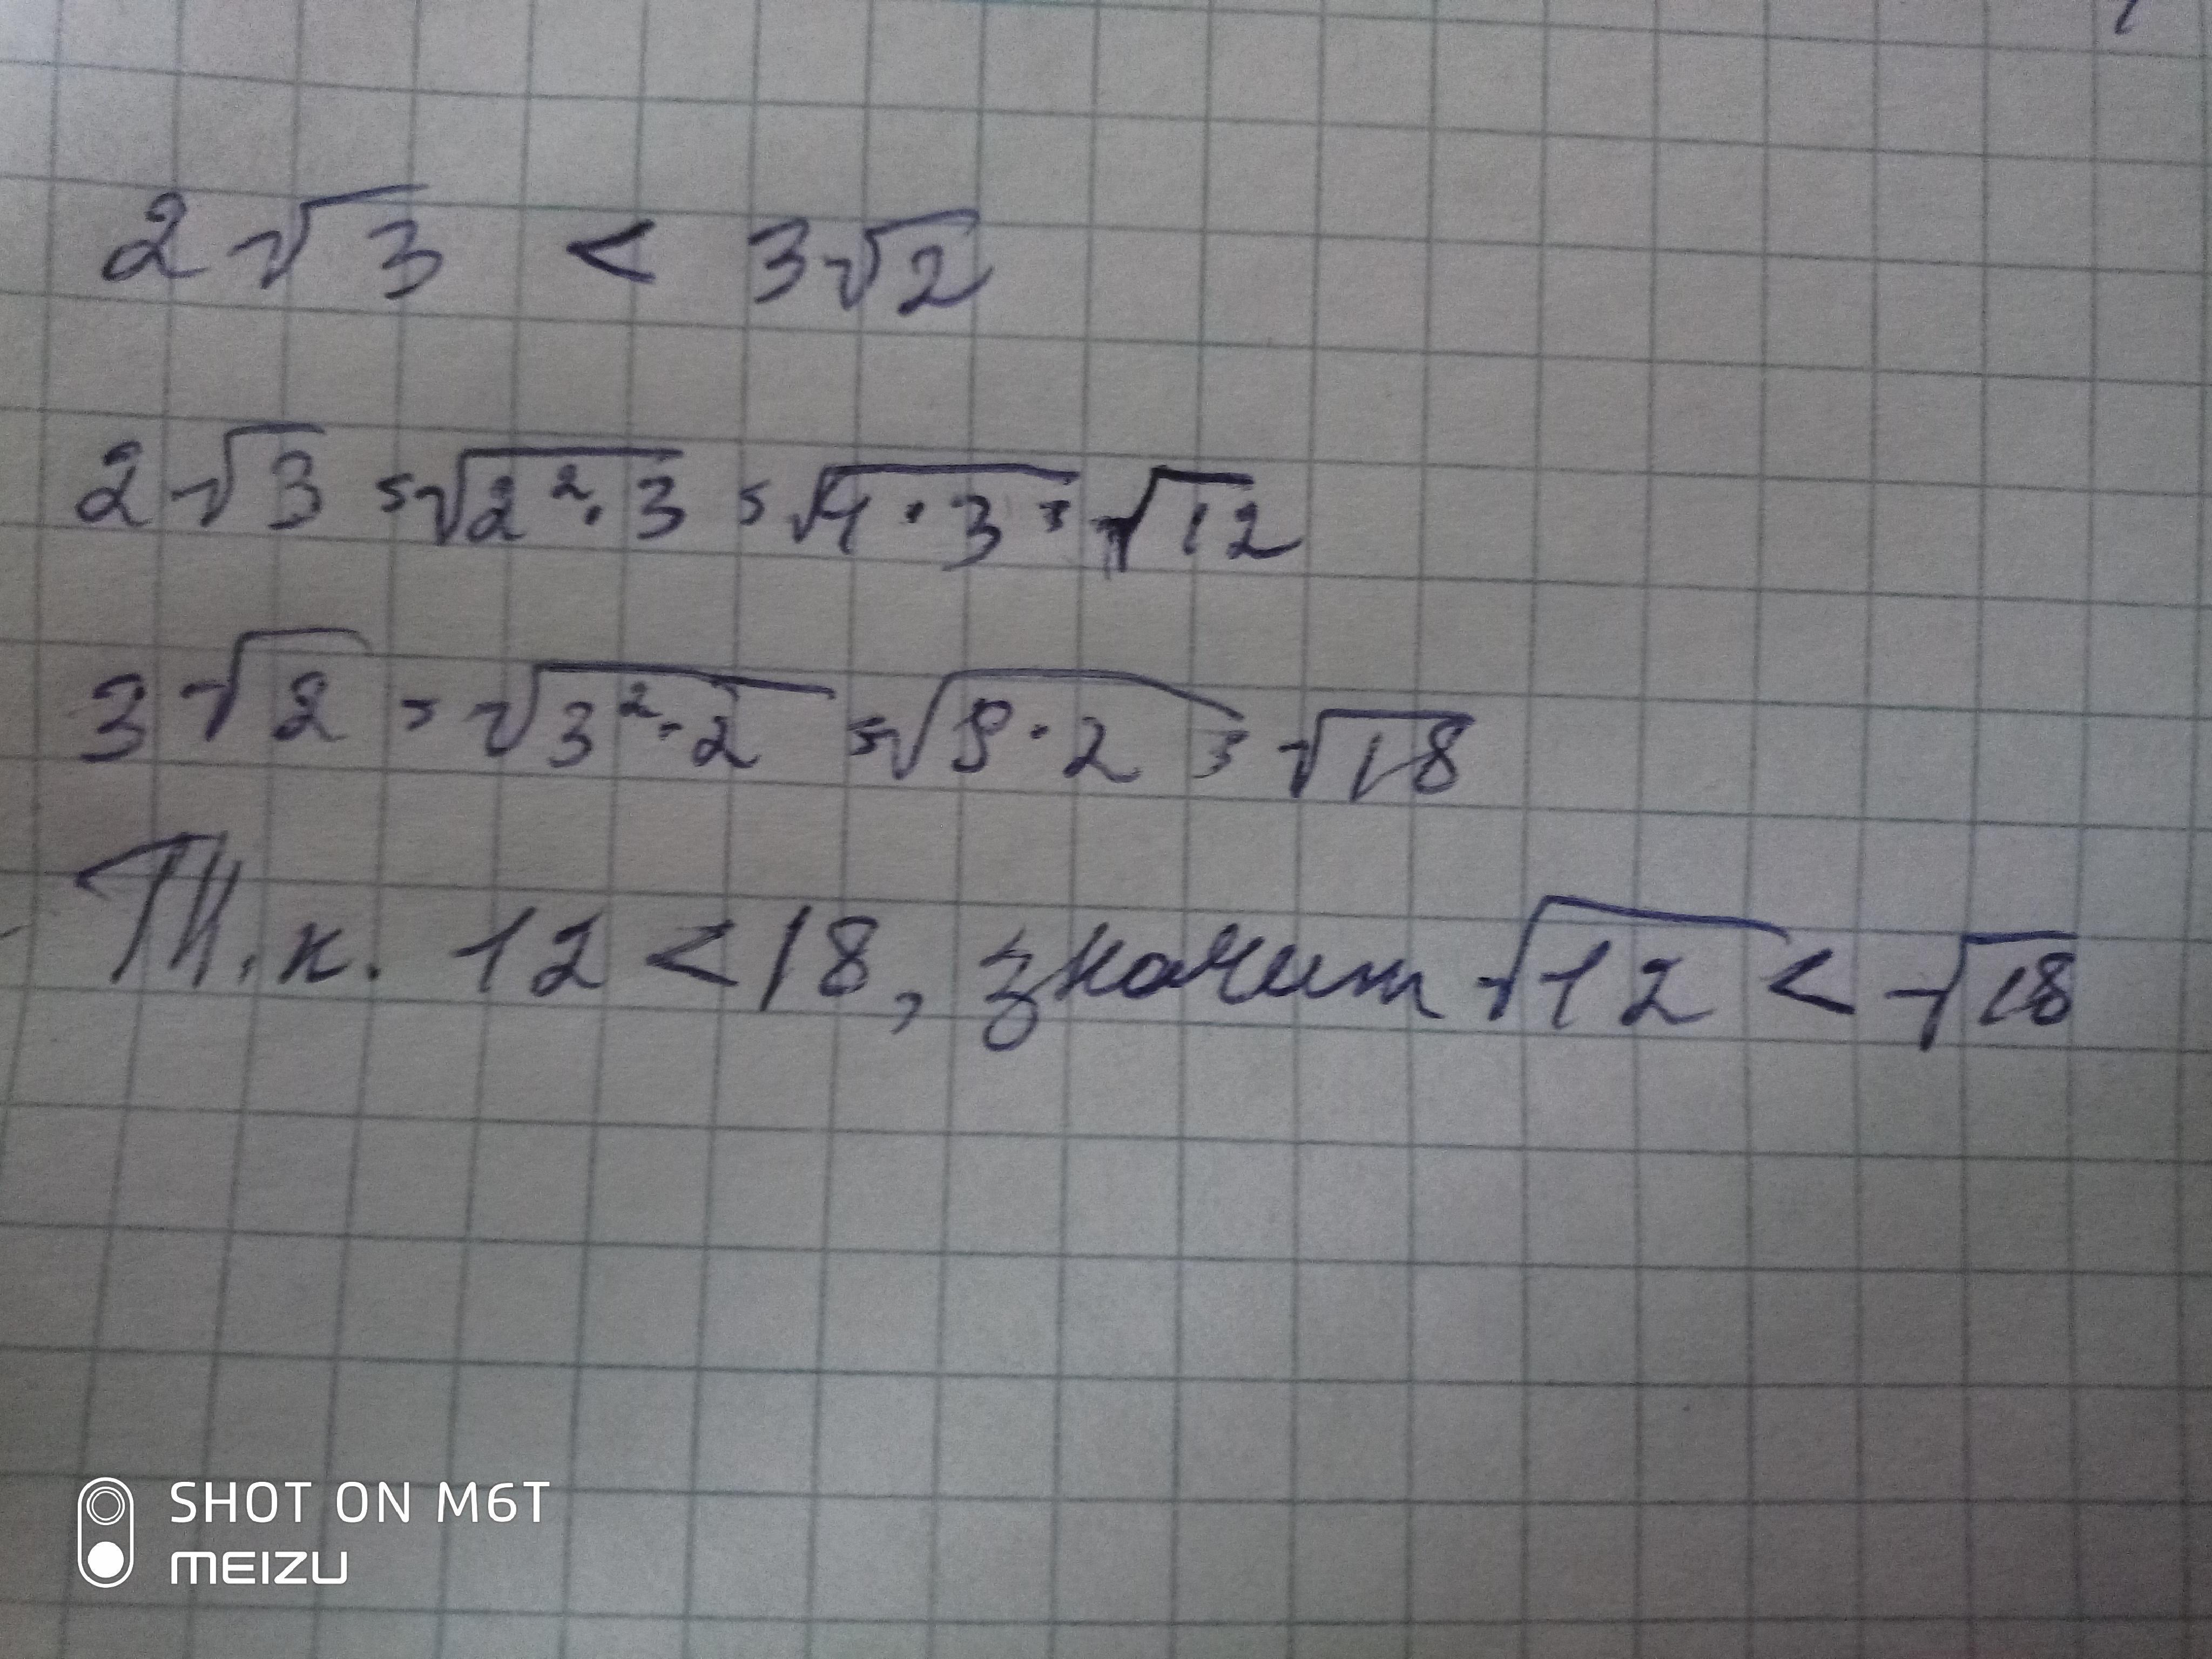 2√3 < 3√2
2√3 = √2²·3 = √4·3 = √12
3√2 = √3²·2 = √9·2 = √18
Т.к. 12 < 18, значит √12 < √18
SHOT ON M6T
MEIZU